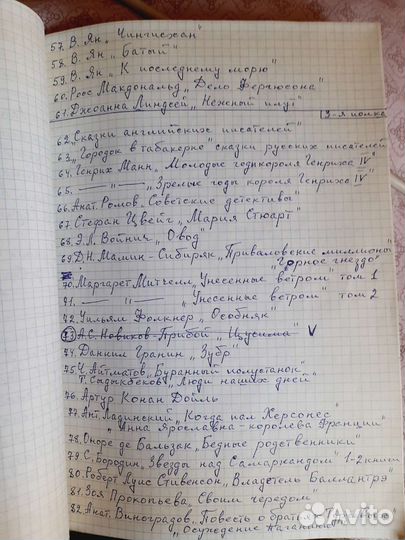 57. В. Ян „Чингисхан"
58. В. Ян „Батый"
59. В. Ян „К последнему морю"
60. Росс Макдональд „Дело Фергюсона"
61. Джоанна Линдсей „Нежный плут"
3-я полка
62. „Сказки английских писателей"
63. „Городок в табакерке" сказки русских писателей
64. Генрих Манн „Молодые годы короля Генриха IV"
65. — " — „Зрелые годы короля Генриха IV"
66. Анат. Ромов „Советские детективы"
67. Стефан Цвейг „Мария Стюарт"
68. Э.Л. Войнич „Овод"
69. Д.Н. Мамин-Сибиряк „Приваловские миллионы"
„Горное гнездо"
70. Маргарет Митчелл „Унесенные ветром" том 1
71. — " — „Унесенные ветром" том 2
72. Уильям Фолкнер „Особняк"
73 А.С. Новиков-Прибой „Цусима" V
74. Даниил Гранин „Зубр"
75. Ч. Айтматов „Буранный полустанок"
Т. Садыкбеков „Люди наших дней"
76. Артур Конан Дойль
77. Ант. Ладинский „Когда пал Херсонес"
„Анна Ярославна - королева Франции"
78. Оноре де Бальзак „Бедные родственники"
79. С. Бородин „Звезды над Самаркандом" 1-2 книги
80. Роберт Луис Стивенсон „Владетель Баллантрэ"
81. Зоя Прокопьева „Своим чередом"
82. Анат. Виноградов „Повесть о братьях
„Осуждение Паганини"
Avito